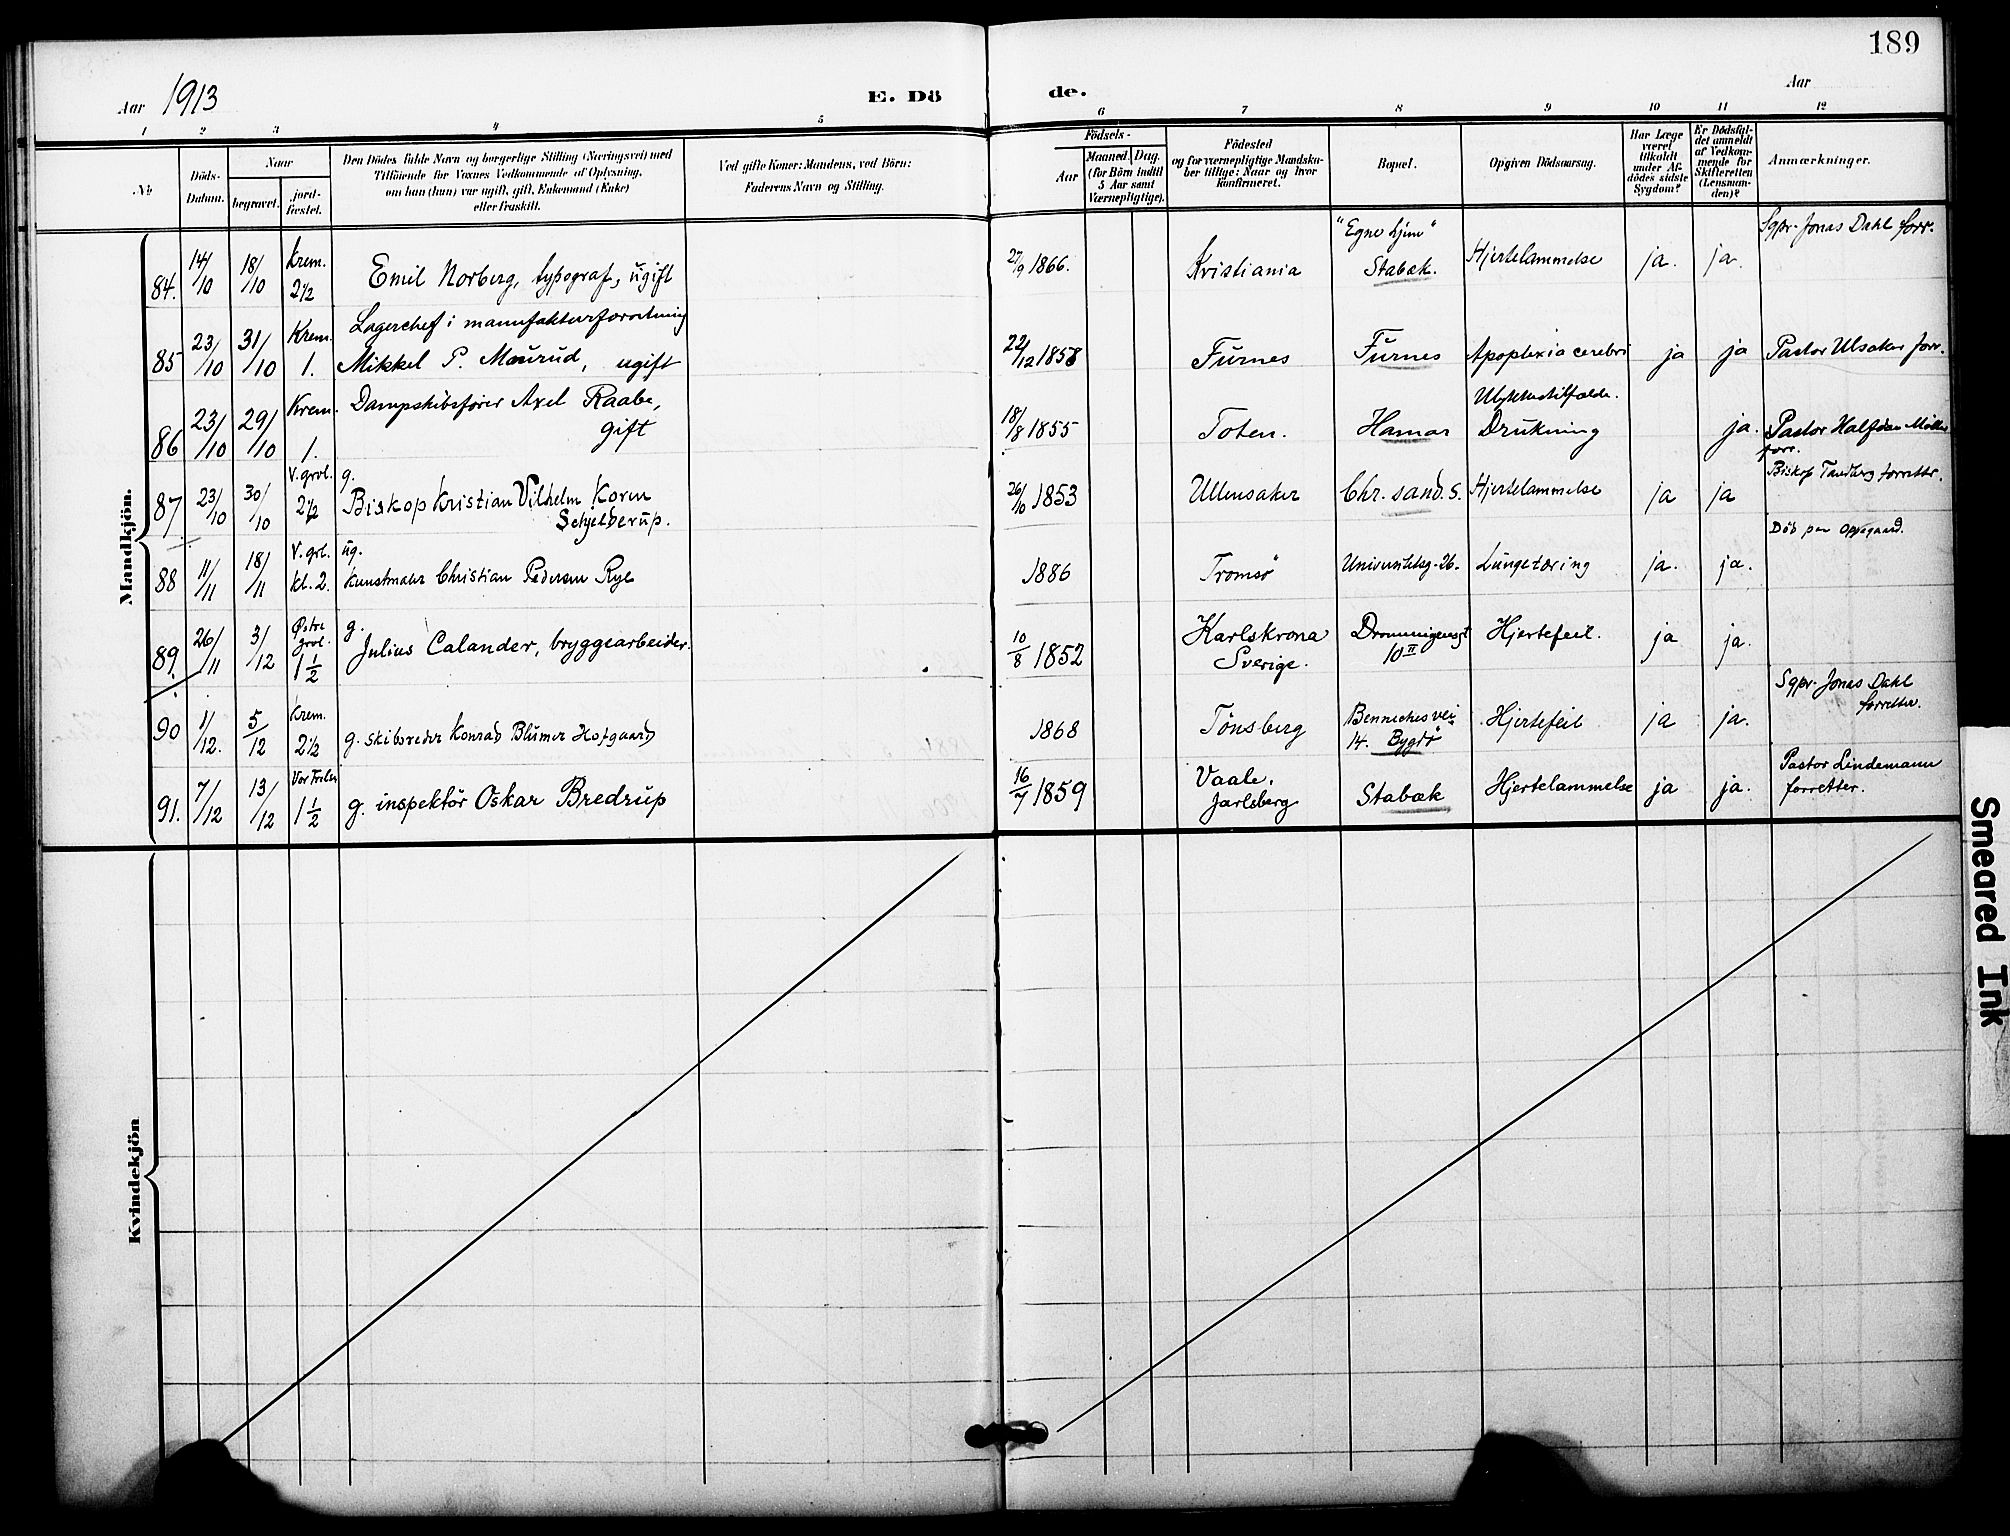 189
Aar 1913
E. Dö
de.
Aar
1 2 3 4 5 6 7 8 9 10 11 12
No
Döds-
Datum.
Naar
begravet.
jord-
fæstet.
Den Dödes fulde Navn og borgerlige Stilling (Næringsvei) med
Tilföiende for Voxnes Vedkommende af Oplysning,
om han (hun) var ugift, gift, Enkemand (Enke)
eller fraskilt.
Ved gifte Koner: Mandens, ved Börn:
Faderens Navn og Stilling.
Födsels-
Aar
Maaned. Dag.
(for Börn indtil
5 Aar samt
Værnepligtige).
Födested
og for værnepligtige Mandska-
ber tillige: Naar og hvor
konfirmeret.
Bopæl.
Opgiven Dödsaarsag.
Har Læge
været
tilkaldt
under Af-
dödes sidste
Sygdom?
Er Dödsfal-
det anmeldt
af Vedkom-
mende for
Skifteretten
(Lensman-
den)?
Anmærkninger.
Mandkjön.
84. 14/10 18/10 Krem. 2½ Emil Norberg, typograf, ugift 27/9 1866. Kristiania "Egne hjem" Stabæk. Hjertelammelse ja. ja. Sgpr. Jonas Dahl forr.
85 23/10 31/10 Krem. 1. Lagerchef i manufakturforretning
Mikkel P. Maurud, ugift 22/12 1858 Furnes Furnes Apoplexia cerebri ja ja Pastor Ulsaker forr.
86 23/10 29/10 Krem. 1. Dampskibsfører Axel Raabe,
gift 18/8 1855 Toten. Hamar Ulykkestilfælde. Drukning ja. Pastor Halfdan Møller
forr.
87 23/10 30/10 V. grvl. 2½ g.
Biskop Kristian Vilhelm Koren
Schjelderup. 26/10 1853 Ullensaker Chr. sand. S. Hjertelammelse ja ja Biskop Tandberg forretter.
88 11/11 18/11 V. grl. kl. 2. ug.
Kunstmaler Christian Pedersen Rye 1886 Tromsø Universitetsg. 26. Lungetæring ja. ja. Død paa Oppegaard.
89. 26/11 3/12 Østre grvl. 1½ g.
Julius Calander, bryggearbeider. 10/8 1852 Karlskrona
Sverige. Dronningensgt
10 II Hjertefeil. ja ja.
90 1/12. 5/12 Krem. 2½ g. skibsreder Konrad Blumer Hofgaard 1868 Tønsberg Bennechesvei
14. Bygdø Hjertefeil ja ja. Sgpr. Jonas Dahl
forretter.
91. 7/12 13/12 Vor Frelse 1½ g. inspektør Oskar Bredrup 16/7 1859 Vaale.
Jarlsberg Stabæk Hjertelammelse ja ja. Pastor Lindemann
forretter.
Kvindekjön
Smeared Ink